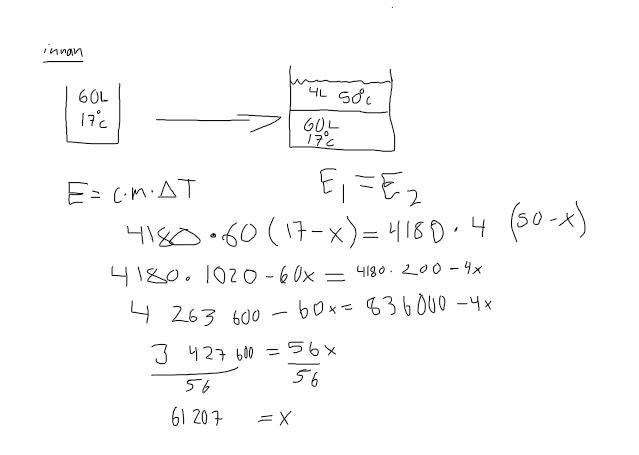 innan
60L
17°C
4L 50°C
60L
17°C
E = c·m·ΔT
E₁ = E₂
4180 · 60 (17-x) = 4180 · 4 (50-x)
4180 · 1020 - 60x = 4180 · 200 - 4x
4 263 600 - 60x = 836000 - 4x
3 427 600 = 56x
56 56
61207 = x